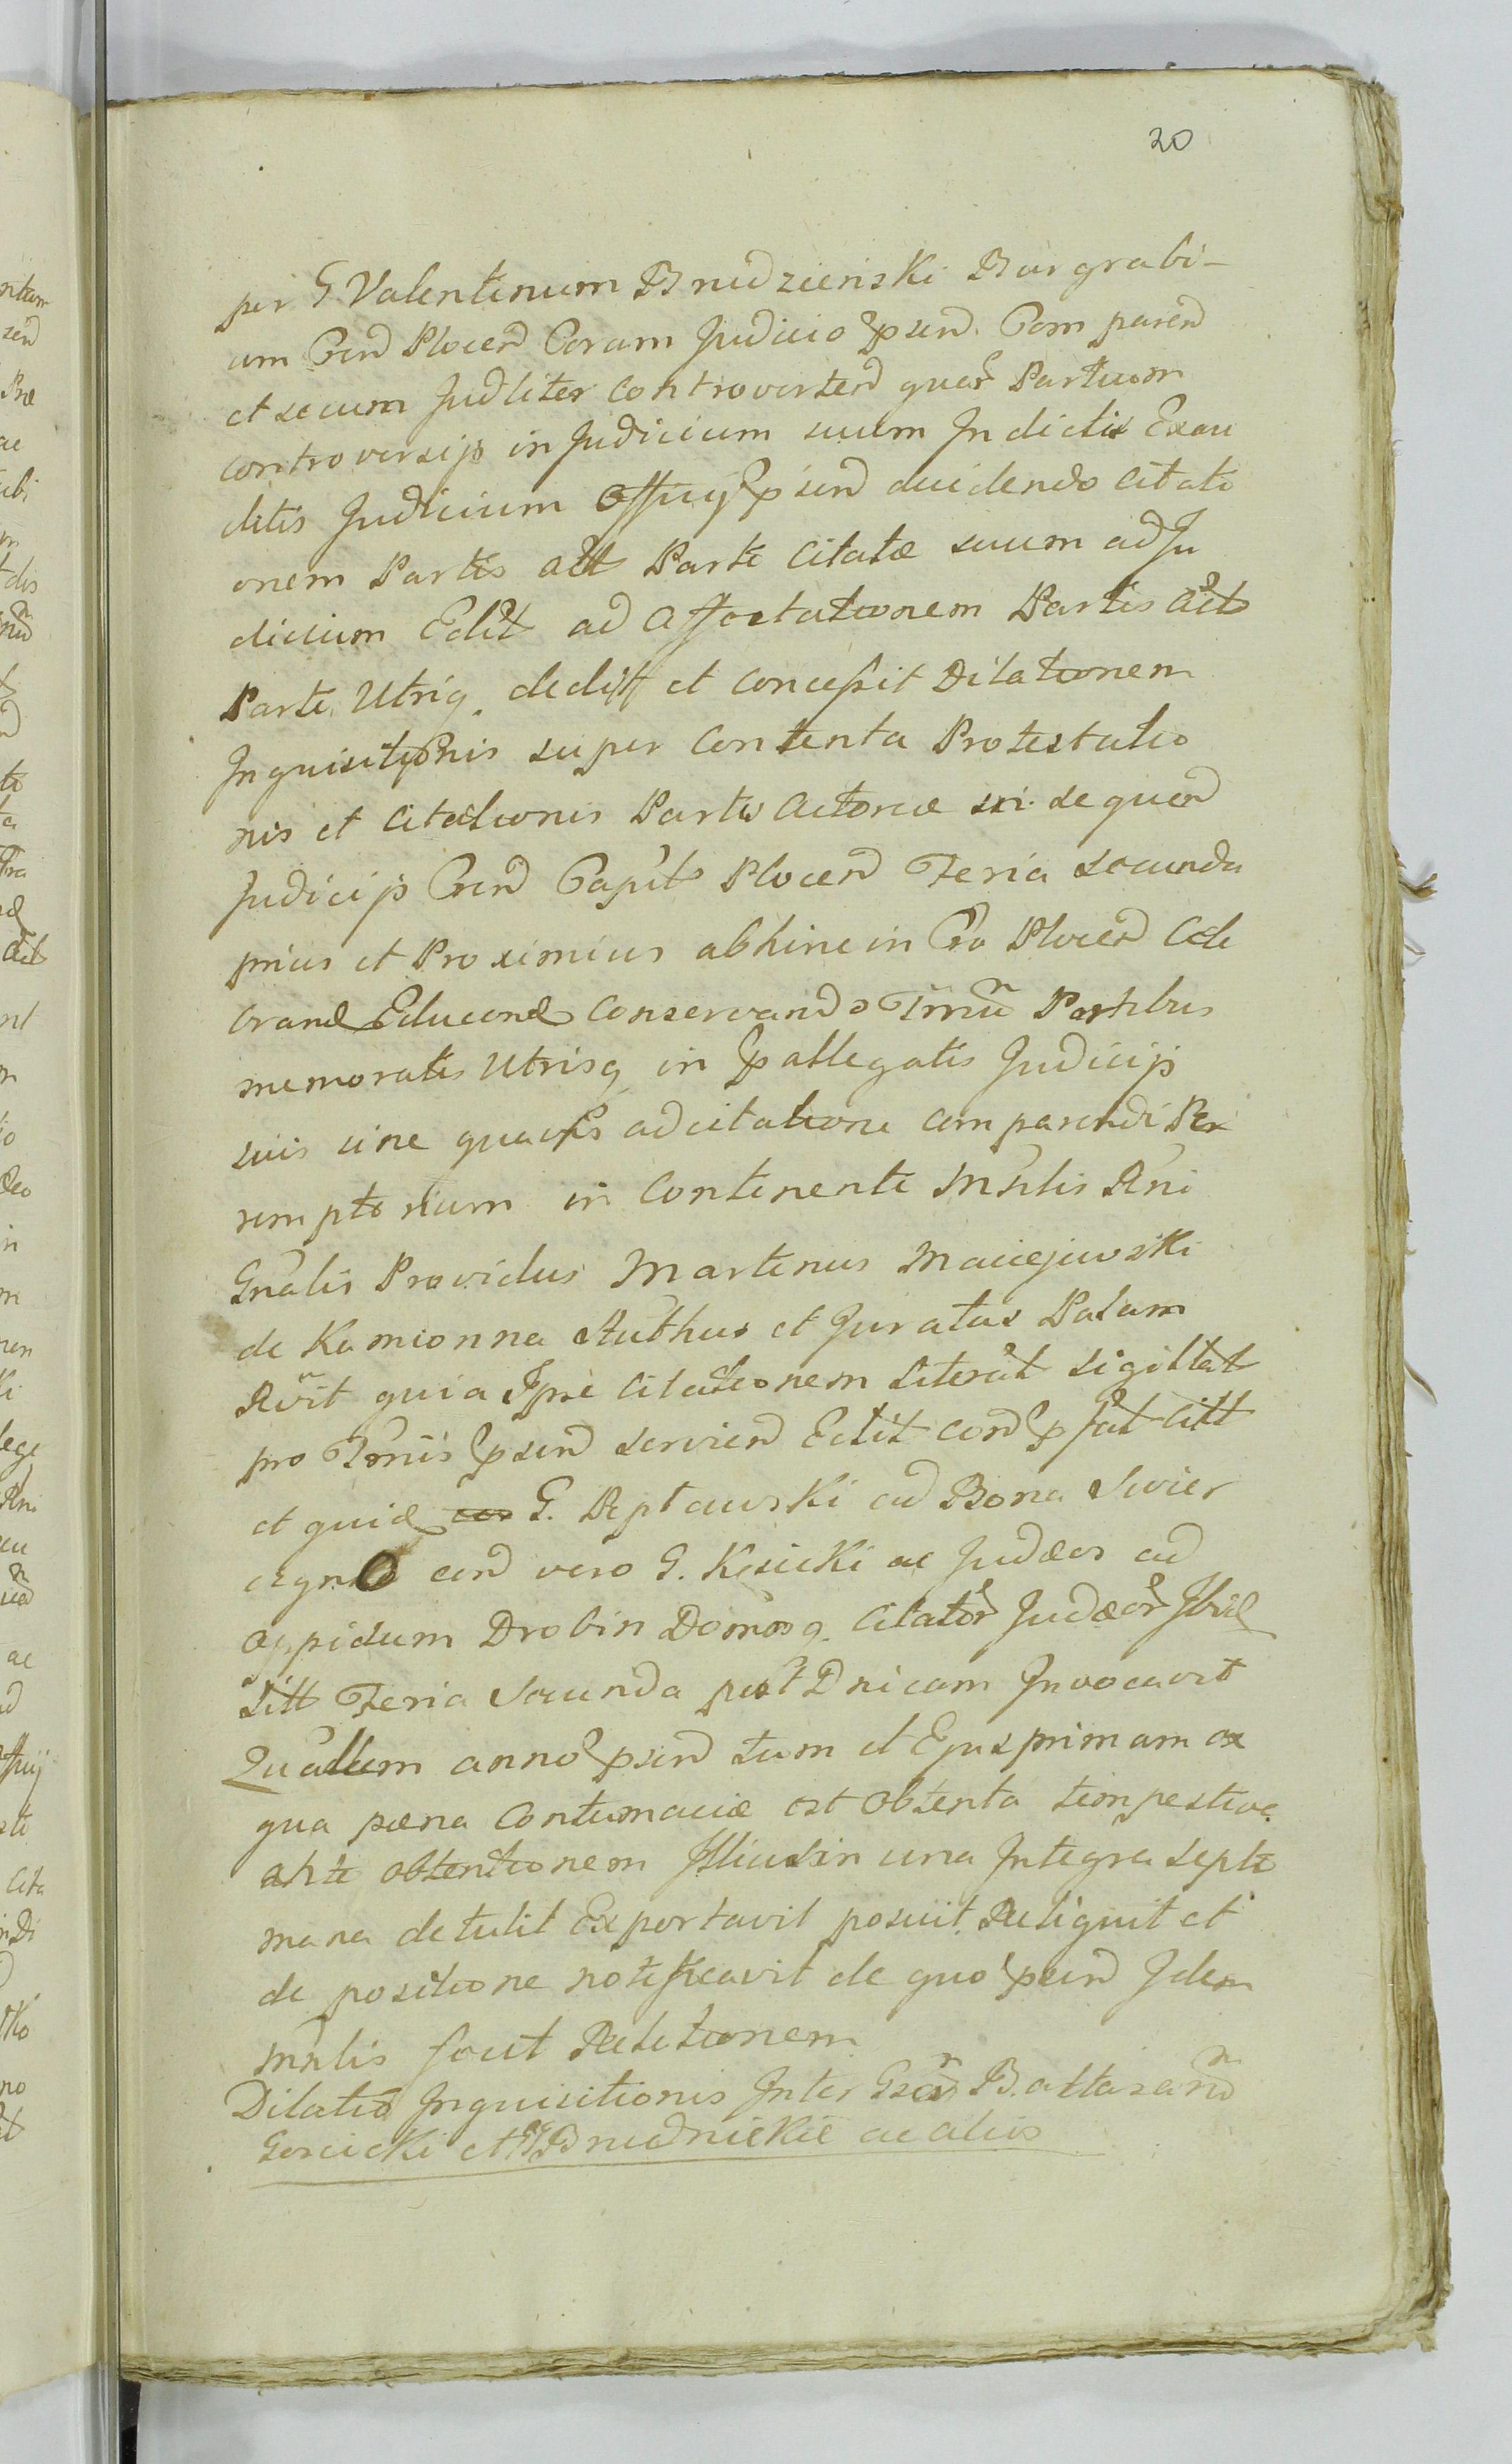 20
per G Valentinum Brudzienski Burgrabi-
um Cren Plocen Coram Judicio Præsen. Com paren
et secum Judliter Controverten quar Partium
controversijs in Judicium suum Indictis Exau
ditis Judicium Officij Præsen decidendo Citati
onem Partis Act Parti Citatæ suum ad Ju
dicium Edit ad affectationem Partis Act
Parti Utriq. dedit et concessit Dilationem
Inquisitionis super Contenta Protestatio
nis et Citationis Partis Actoreæ in sequen
Judicijs Cren Capit Plocen Feria Secunda
prius et Proximius abhinc in Cro Plocen Cele
brand Educend Conservando Tmnu Partibus
memoratis Utrisq in Præallegatis Judicijs
suis sine quavis adcitatione comparendi Per
remptorium in Continenti Mnlis Rni
Gnalis Providus Martinus Maciejewski
de Kamionna Authus et Juratus Palam
Rvit quia Ipse Citationem Literat Sigillat
pro Tmnis Præsen servien Edit con Præfat Citt
et quid G. Deptawski ad Bona Swier
con vero G. Kesicki ac Judæos ad
oppidum Drobin Domosq. Citator Judæor Ibid
Sitt Feria Secunda post Dnicam Invocavit
Quadlem anno Præsen tum et Ejus primam ex
qua pæna Contumaciæ est obtenta tempestive
ante obtentionem Illius in una Integra septi
mana detulit Exportavit posuit Reliquit et
de positione notificavit de quo Præsen Idem
mnlis fecit Relationem
Dilatio Inquisitionis Inter Gsos Baltasarn
Goscicki et GG Brudnickie ac alios